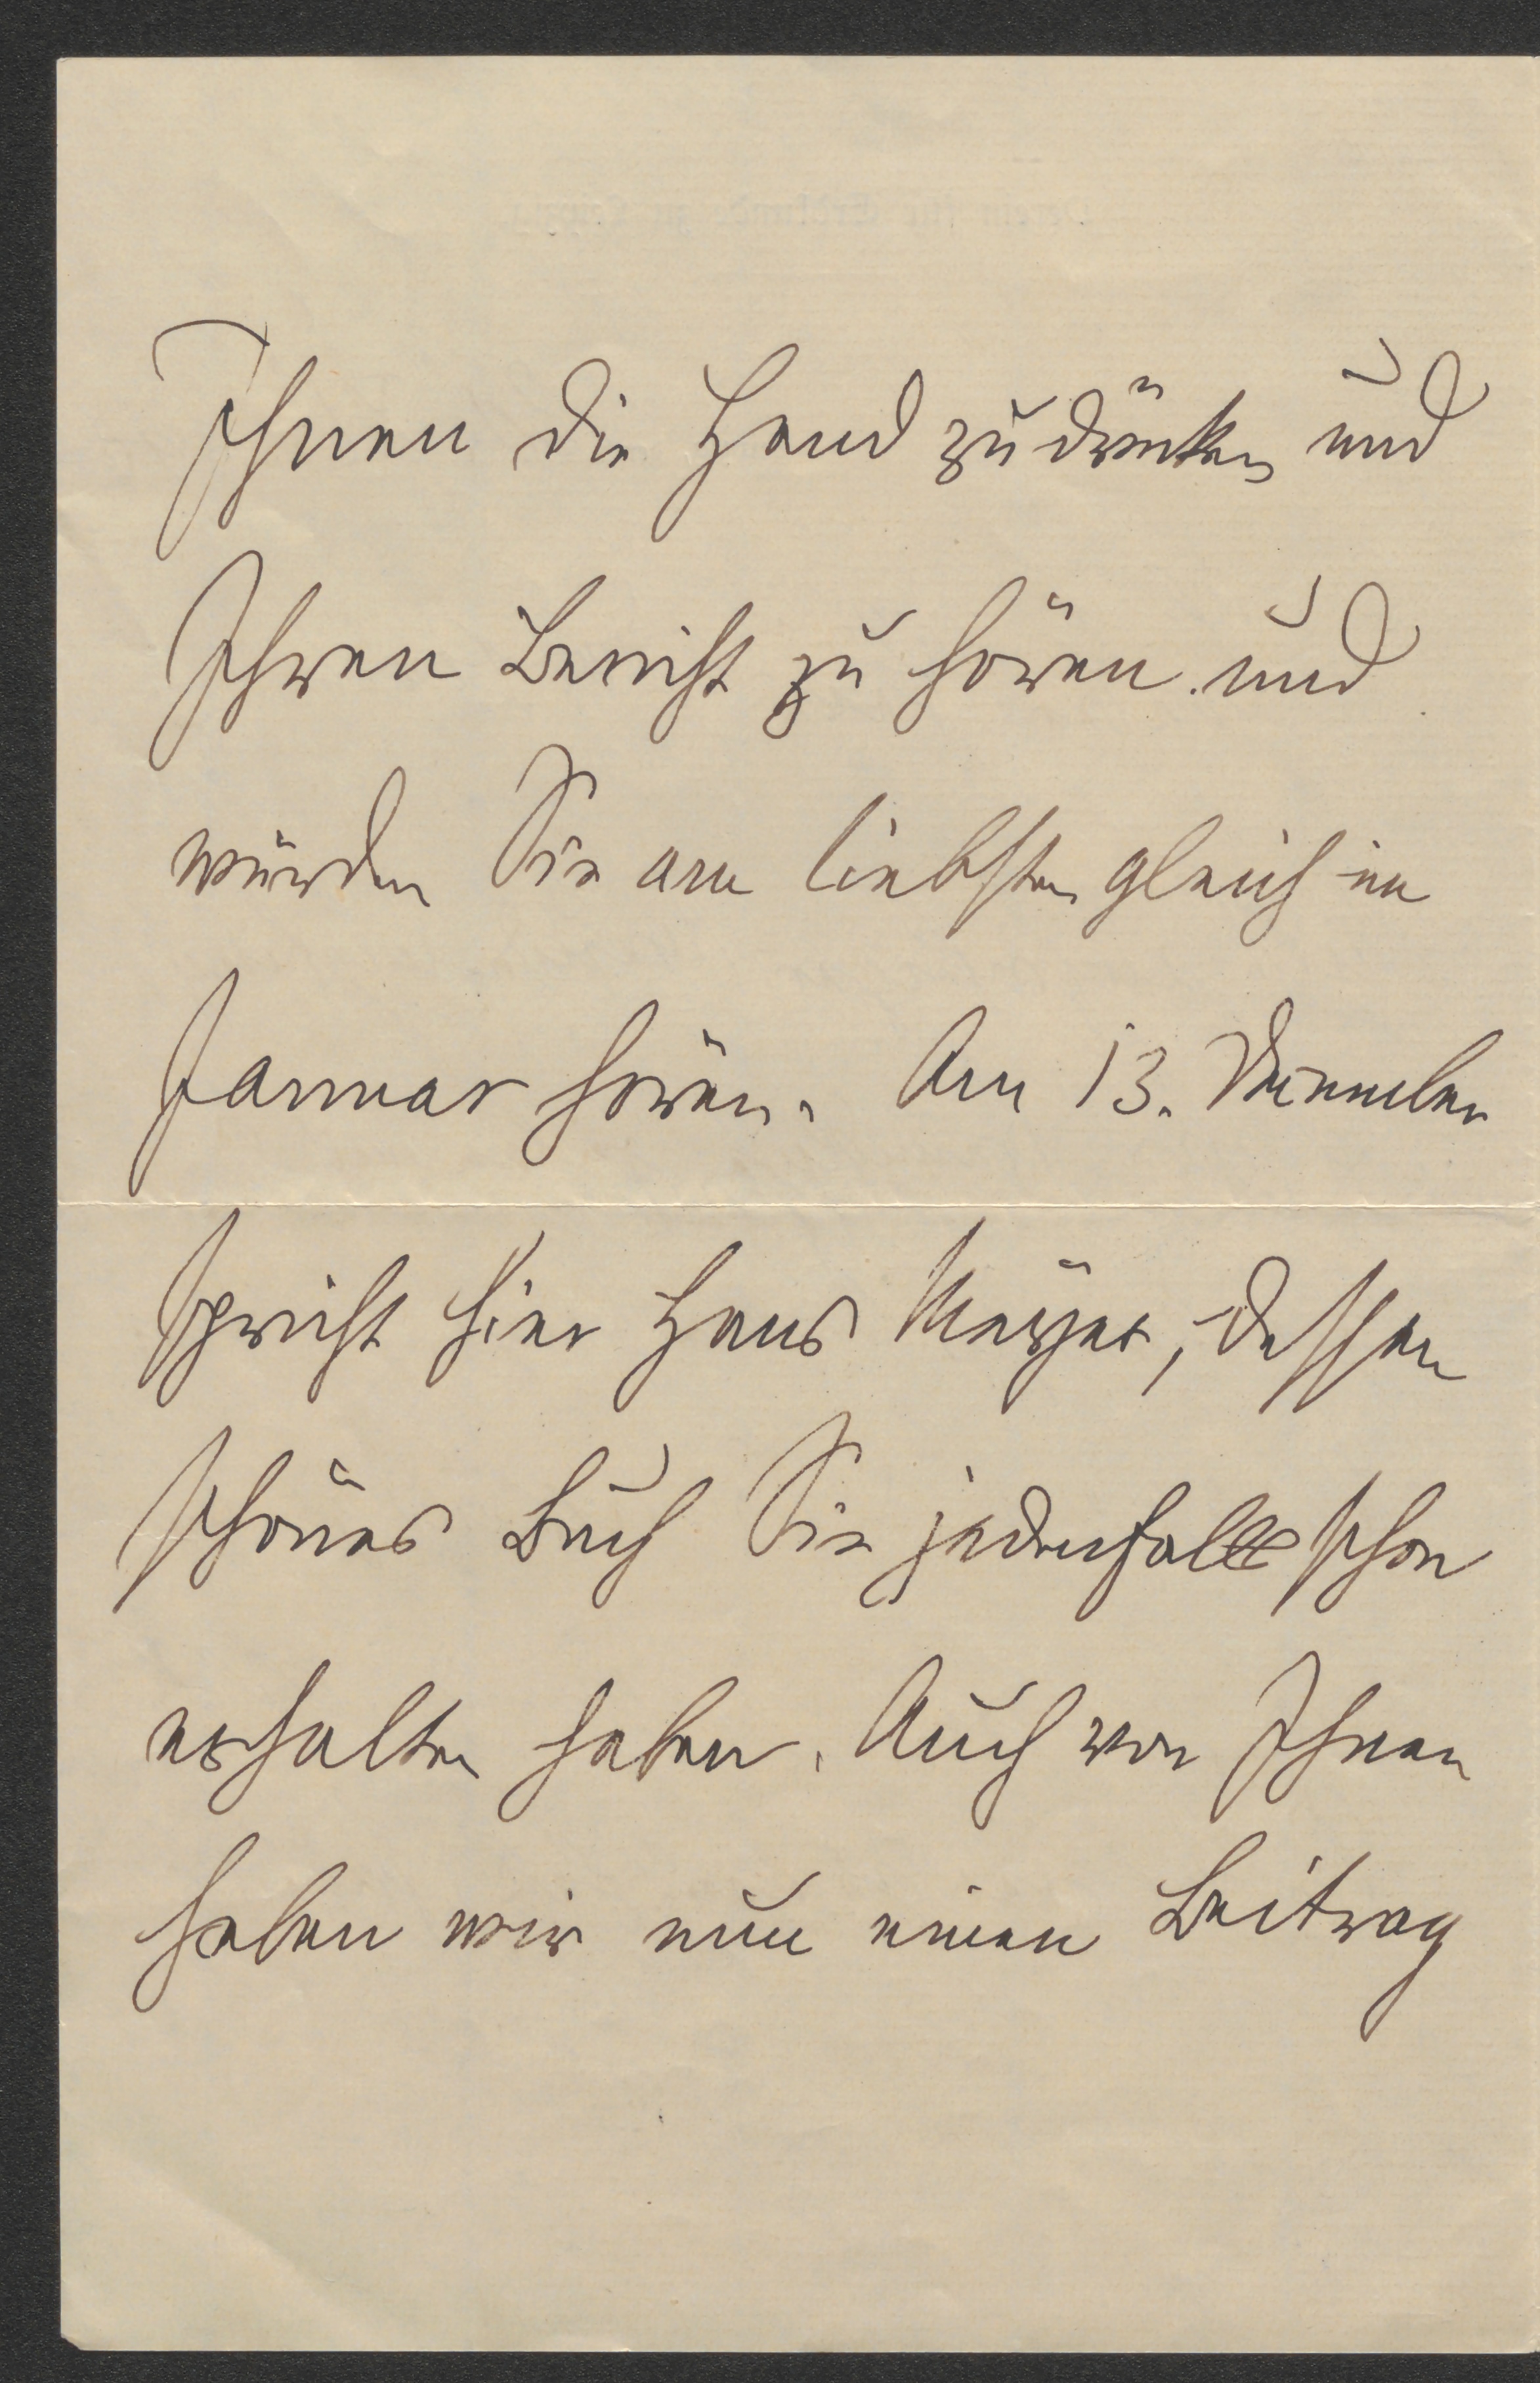 Ihnen die Hand zu drücken und
Ihren Bericht zu hören und
würden Sie am liebsten gleich im
Januar hören. Am 13. Dezember
spricht hier Hans Meyer, dessen
schönes Buch Sie jedenfalls schon
erhalten haben. Auch von Ihnen
haben wir nun einen Beitrag